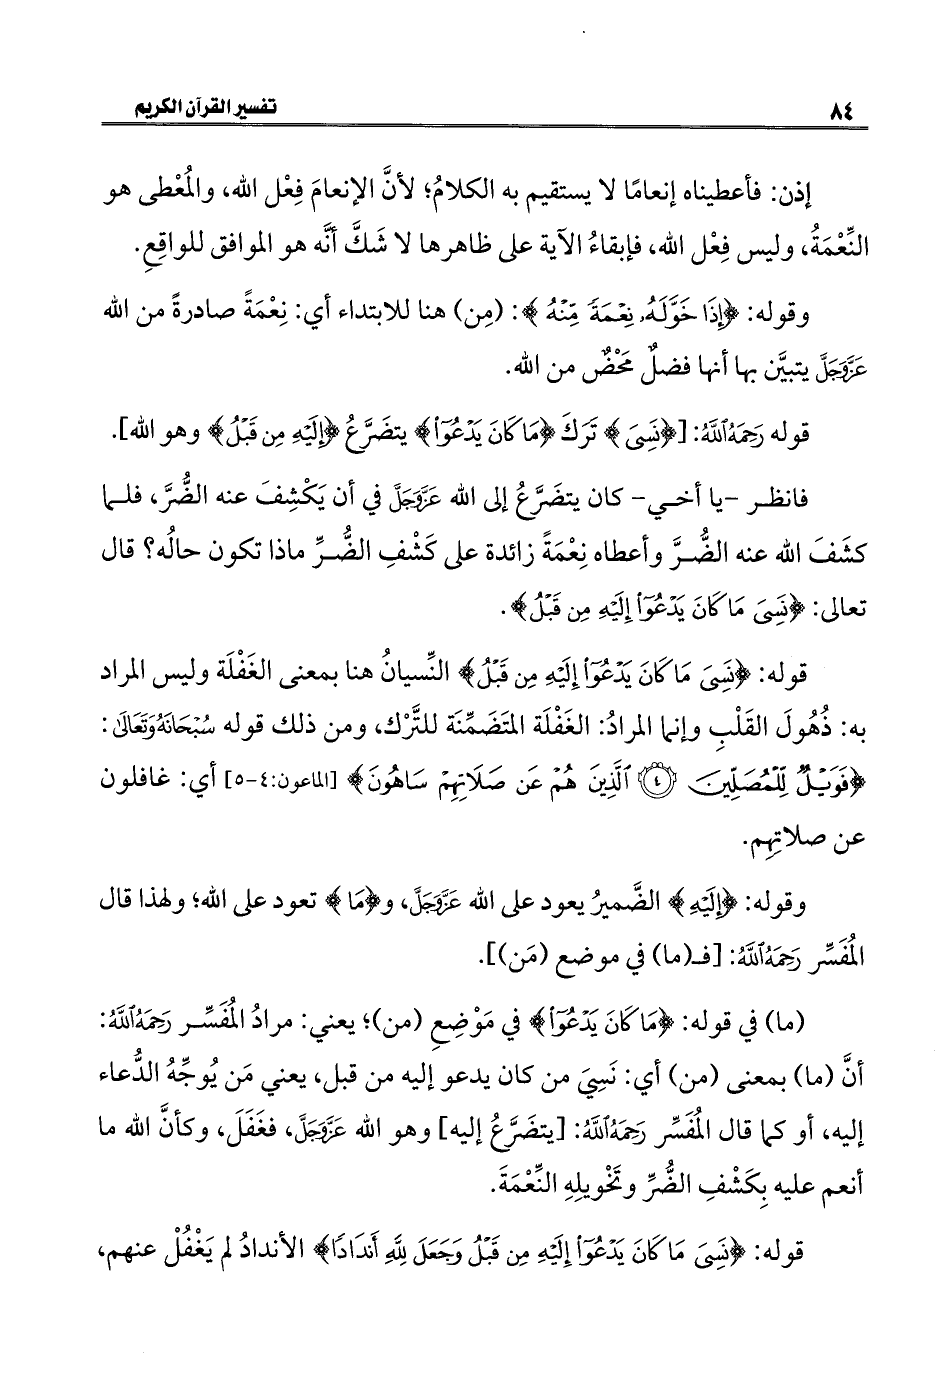 ٨٤ تفسير القرآن الكريم
إذن: فأعطيناه إنعامًا لا يستقيم به الكلامُ؛ لأنَّ الإنعامَ فِعْل الله، والمُعْطى هو
النِّعْمَةُ، وليس فِعْل الله، فإبقاءُ الآية على ظاهرها لا شَكَّ أنَّه هو الموافق للواقعِ.
وقوله: ﴿إِذَا خَوَّلَهُۥ نِعْمَةً مِّنْهُ﴾: (مِن) هنا للابتداء أي: نِعْمَةً صادرةً من الله
عَزَّوَجَلَّ يتبيَّن بها أنها فضلٌ مَحْضٌ من الله.
قوله رَحِمَهُ ٱللَّهُ: [﴿نَسِىَ﴾ تَرَكَ ﴿مَا كَانَ يَدْعُوٓا۟﴾ يتضَرَّعُ ﴿إِلَيْهِ مِن قَبْلُ﴾ وهو الله].
فانظر -يا أخي- كان يتضَرَّعُ إلى الله عَزَّوَجَلَّ في أن يَكْشِفَ عنه الضُّرَّ، فلما
كشَفَ الله عنه الضُّرَّ وأعطاه نِعْمَةً زائدة على كَشْفِ الضُّرِّ ماذا تكون حالُه؟ قال
تعالى: ﴿نَسِىَ مَا كَانَ يَدْعُوٓا۟ إِلَيْهِ مِن قَبْلُ﴾.
قوله: ﴿نَسِىَ مَا كَانَ يَدْعُوٓا۟ إِلَيْهِ مِن قَبْلُ﴾ النِّسيانُ هنا بمعنى الغَفْلَة وليس المراد
به: ذُهُولَ القَلْبِ وإنما المرادُ: الغَفْلَة المتَضَمِّنَة للتَّرْك، ومن ذلك قوله سُبْحَانَهُ وَتَعَالَىٰ:
﴿فَوَيْلٌ لِّلْمُصَلِّينَ ﴿٤﴾ ٱلَّذِينَ هُمْ عَن صَلَاتِهِمْ سَاهُونَ﴾ [الماعون:٤-٥] أي: غافلون
عن صلاتِهِم.
وقوله: ﴿إِلَيْهِ﴾ الضَّميرُ يعود على الله عَزَّوَجَلَّ، و﴿مَا﴾ تعود على الله؛ ولهذا قال
المُفَسِّر رَحِمَهُ ٱللَّهُ: [فـ(ما) في موضع (مَن)].
(ما) في قوله: ﴿مَا كَانَ يَدْعُوٓا۟﴾ في مَوْضِعِ (من)؛ يعني: مرادُ المُفَسِّر رَحِمَهُ ٱللَّهُ:
أنَّ (ما) بمعنى (من) أي: نَسِيَ من كان يدعو إليه من قبل، يعني مَن يُوجِّهُ الدُّعاء
إليه، أو كما قال المُفَسِّر رَحِمَهُ ٱللَّهُ: [يتضَرَّعُ إليه] وهو الله عَزَّوَجَلَّ، فغَفَلَ، وكأنَّ الله ما
أنعم عليه بِكَشْفِ الضُّرِّ وتَخْويلِهِ النِّعْمَةَ.
قوله: ﴿نَسِىَ مَا كَانَ يَدْعُوٓا۟ إِلَيْهِ مِن قَبْلُ وَجَعَلَ لِلَّهِ أَندَادًا﴾ الأندادُ لم يَغْفُلْ عنهم،